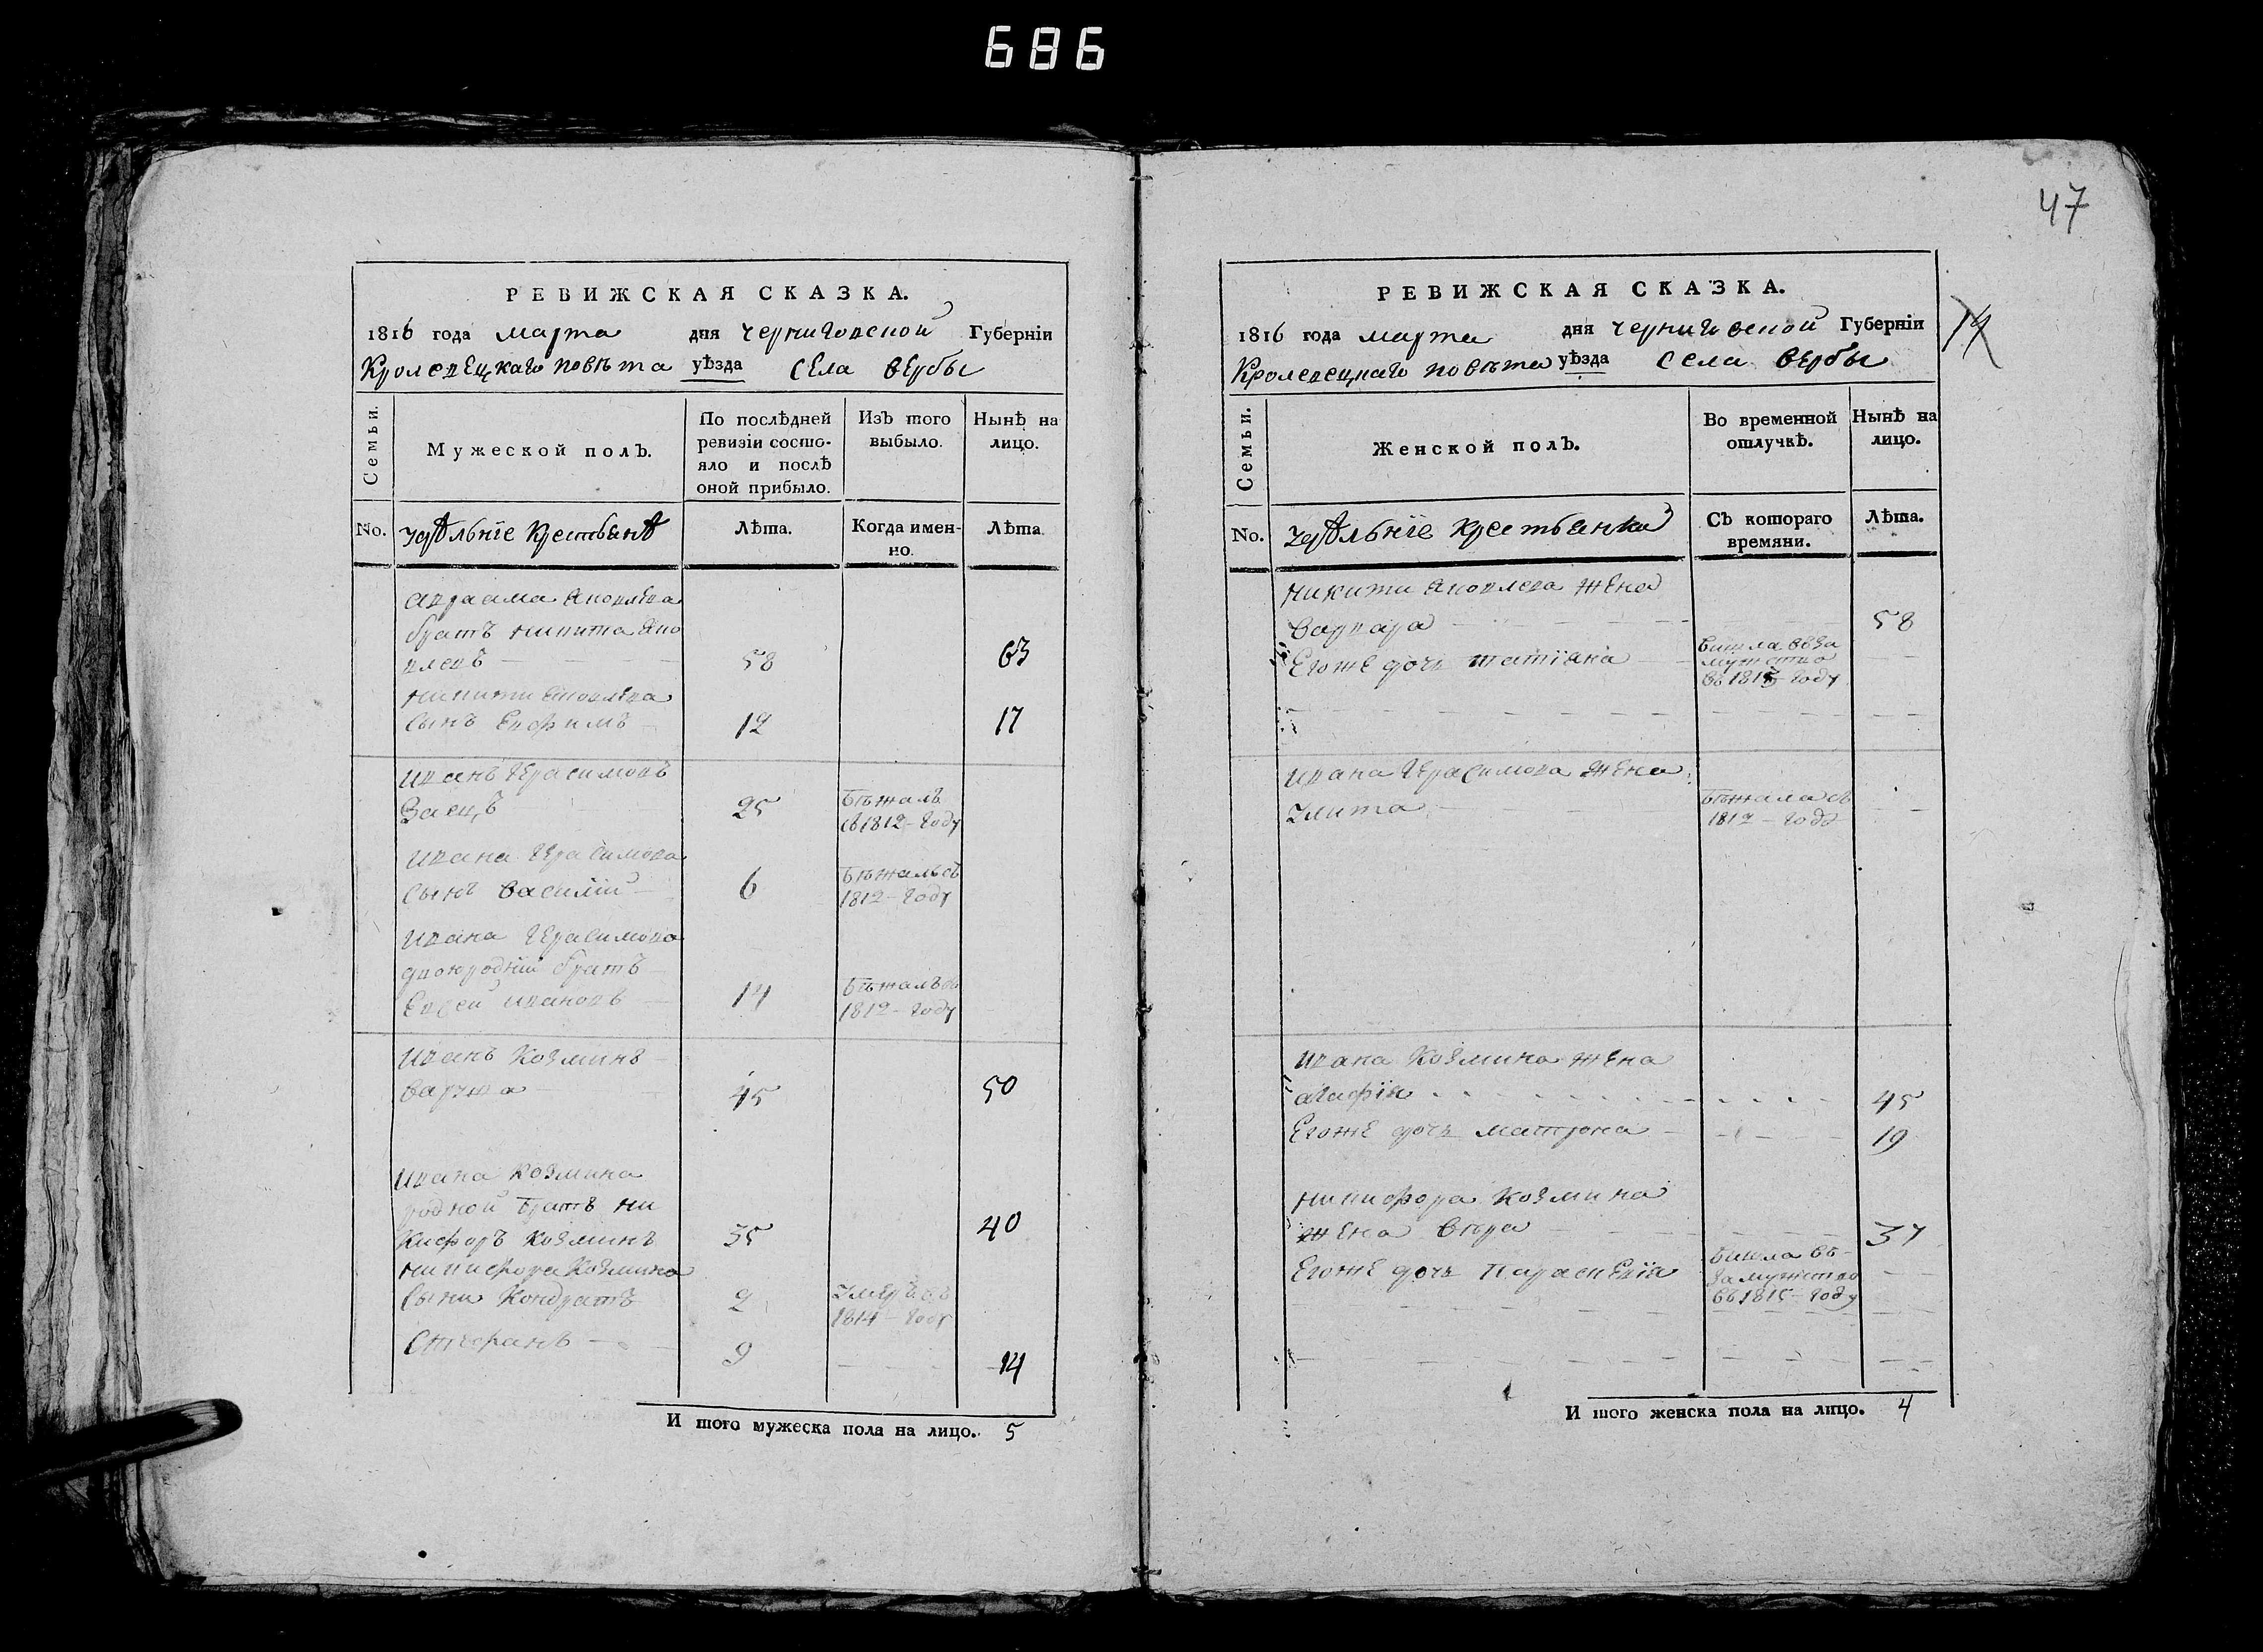 686
47
РЕВИЖСКАЯ СКАЗКА.
1816 года марта дня Черниговской Губерніи
Кролевецкаго повѣта уѣзда села вербы
Семьи.
Мужеской полъ.
По послѣдней
ревизіи состо-
яло и послѣ
оной прибыло.
Изъ того
выбыло.
Нынѣ на
лицо.
No.
удѣльніе крестьянѣ
Лѣта.
Когда имен-
но.
Лѣта
авраама яковлева
братъ никита яко
влевъ 58 63
никити яковлева
сынъ Евфимъ 12 17
иванъ герасимовъ
Заецъ 25 бѣжалъ
въ 1812 году
ивана герасимова
сынъ василій 6 бѣжалъ въ
1812 году
ивана герасимова
двоюродній братъ
Евсей ивановъ 14 бѣжалъ въ
1812 году
иванъ козминъ
45 50
ивана козмина
родной братъ ни
кифоръ козминъ 35 40
никифора козмина
сыни кондратъ 2 умеръ въ
1814 году
стефанъ 9 14
И того мужеска пола на лицо. 5
РЕВИЖСКАЯ СКАЗКА.
14
1816 года марта дня Черниговской Губерніи
Кролевецкаго повѣта уѣзда села вербы
Семьи.
Женской полъ.
Во временной
отлучкѣ.
Нынѣ на
лицо.
No.
удѣльніе крестьянки
Съ котораго
времяни.
Лѣта.
никити яковлева жена
варвара 58
Егоже дочь татіяна вишла вза
мужство
въ 1815 году
ивана герасимова жена
улита бѣжала въ
1812 году
ивана козмина жена
агафія 45
Егоже дочь матрона 19
никифора козмина
жена вѣра 37
Егоже дочь параскевія вишла въ
замужство
въ 1815 году
И того женска пола на лицо. 4